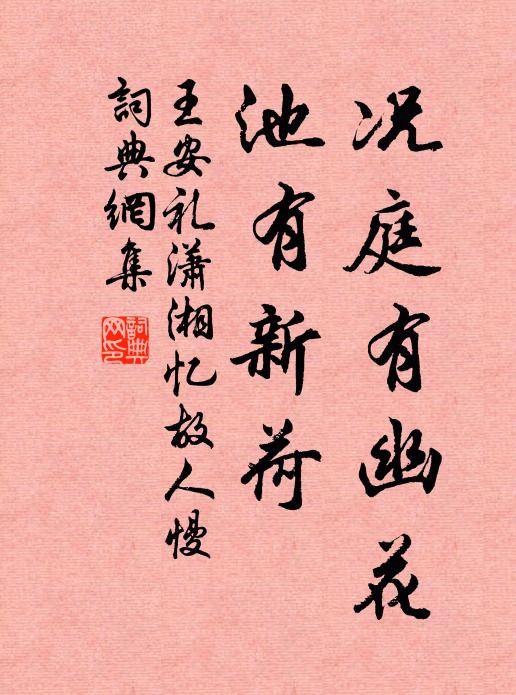 况庭有幽花
池有新荷
王安礼潇湘忆故人慢
詞典網集
詞典
网印